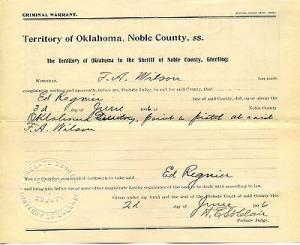 CRIMINAL WARRANT.
Territory of Oklahoma, Noble County, ss.
The Territory of Oklahoma to the Sheriff of Noble County, Greeting:
Whereas, T. A. Wilson has made
complaint in writing and upon oath, before me, Probate Judge, in and for said County, that
Ed Regnier late of said County did, on or about the
2d day of June Noble County
Oklahoma point a pistol at said
T. A. Wilson
You are therefore commanded forthwith to take said Ed Regnier
and bring him before me or some other magistrate having cognizance of the case to be dealt with according to law.
Given under my hand and the seal of the Probate Court of said County this
2d day of June
Probate Judge.